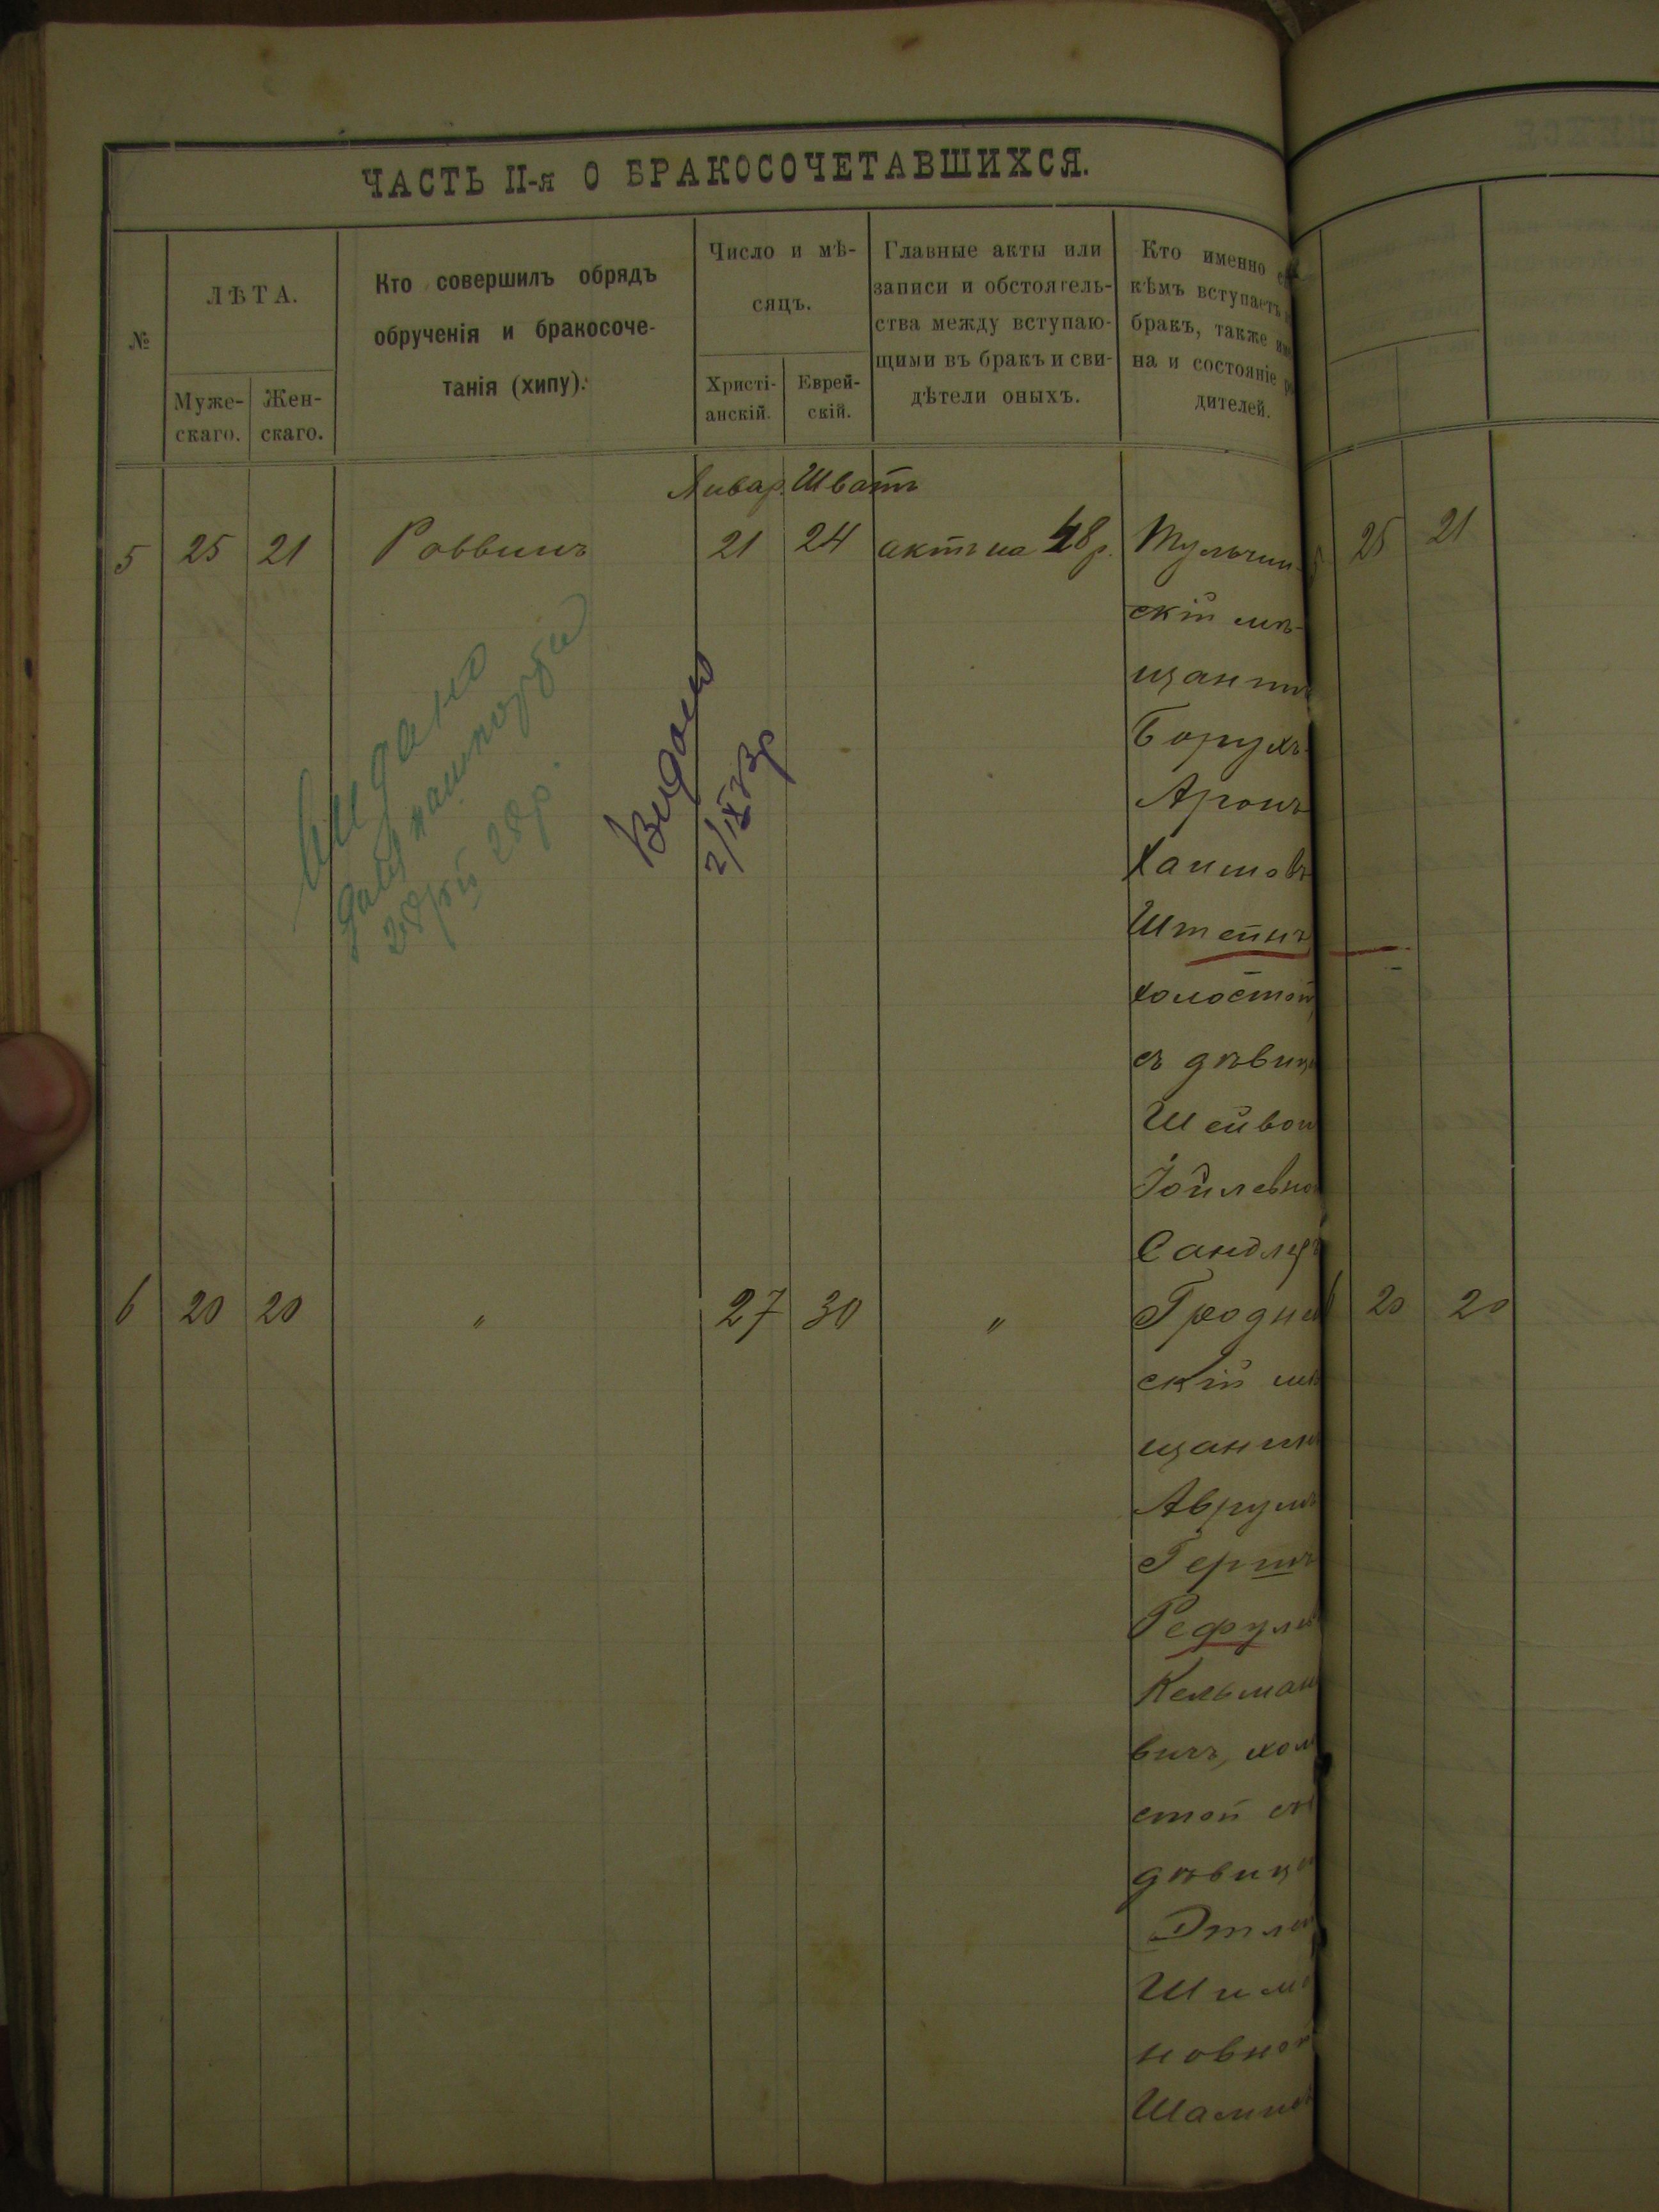 ЧАСТЬ II-я О БРАКОСОЧЕТАВШИХСЯ.
№
ЛѢТА.
Муже-
скаго.
Жен-
скаго.
Кто совершилъ обрядъ
обрученія и бракосоче-
танія (хипу).
Число и мѣ-
сяцъ.
Христі-
анскій.
Еврей-
скій.
Главные акты или
записи и обстоятель-
ства между вступаю-
щими въ бракъ и сви-
дѣтели оныхъ.
Кто именно
кѣмъ вступаетъ
бракъ, также
на и состояніе
дителей.
Январ. Шватъ
5 25 21 Раввинъ 21 24 актъ на 48 р. Тульчин-
скій мѣ-
щанинъ
Борухъ-
Аронъ
Хаимовъ
Штейнъ
холостой,
съ дѣвице
Шейвой
Іойлевной
Сандлеръ
Видано
28 р.
Видано
2/IX
6 20 20 " 27 30 " Гроднен
скій мѣ
щанинъ
Аврумъ
Гершъ
Рефули
Кельмано
вичъ, холо
стой съ
дѣвице
Этлей
Шимо
новной
25 21
6 20 20